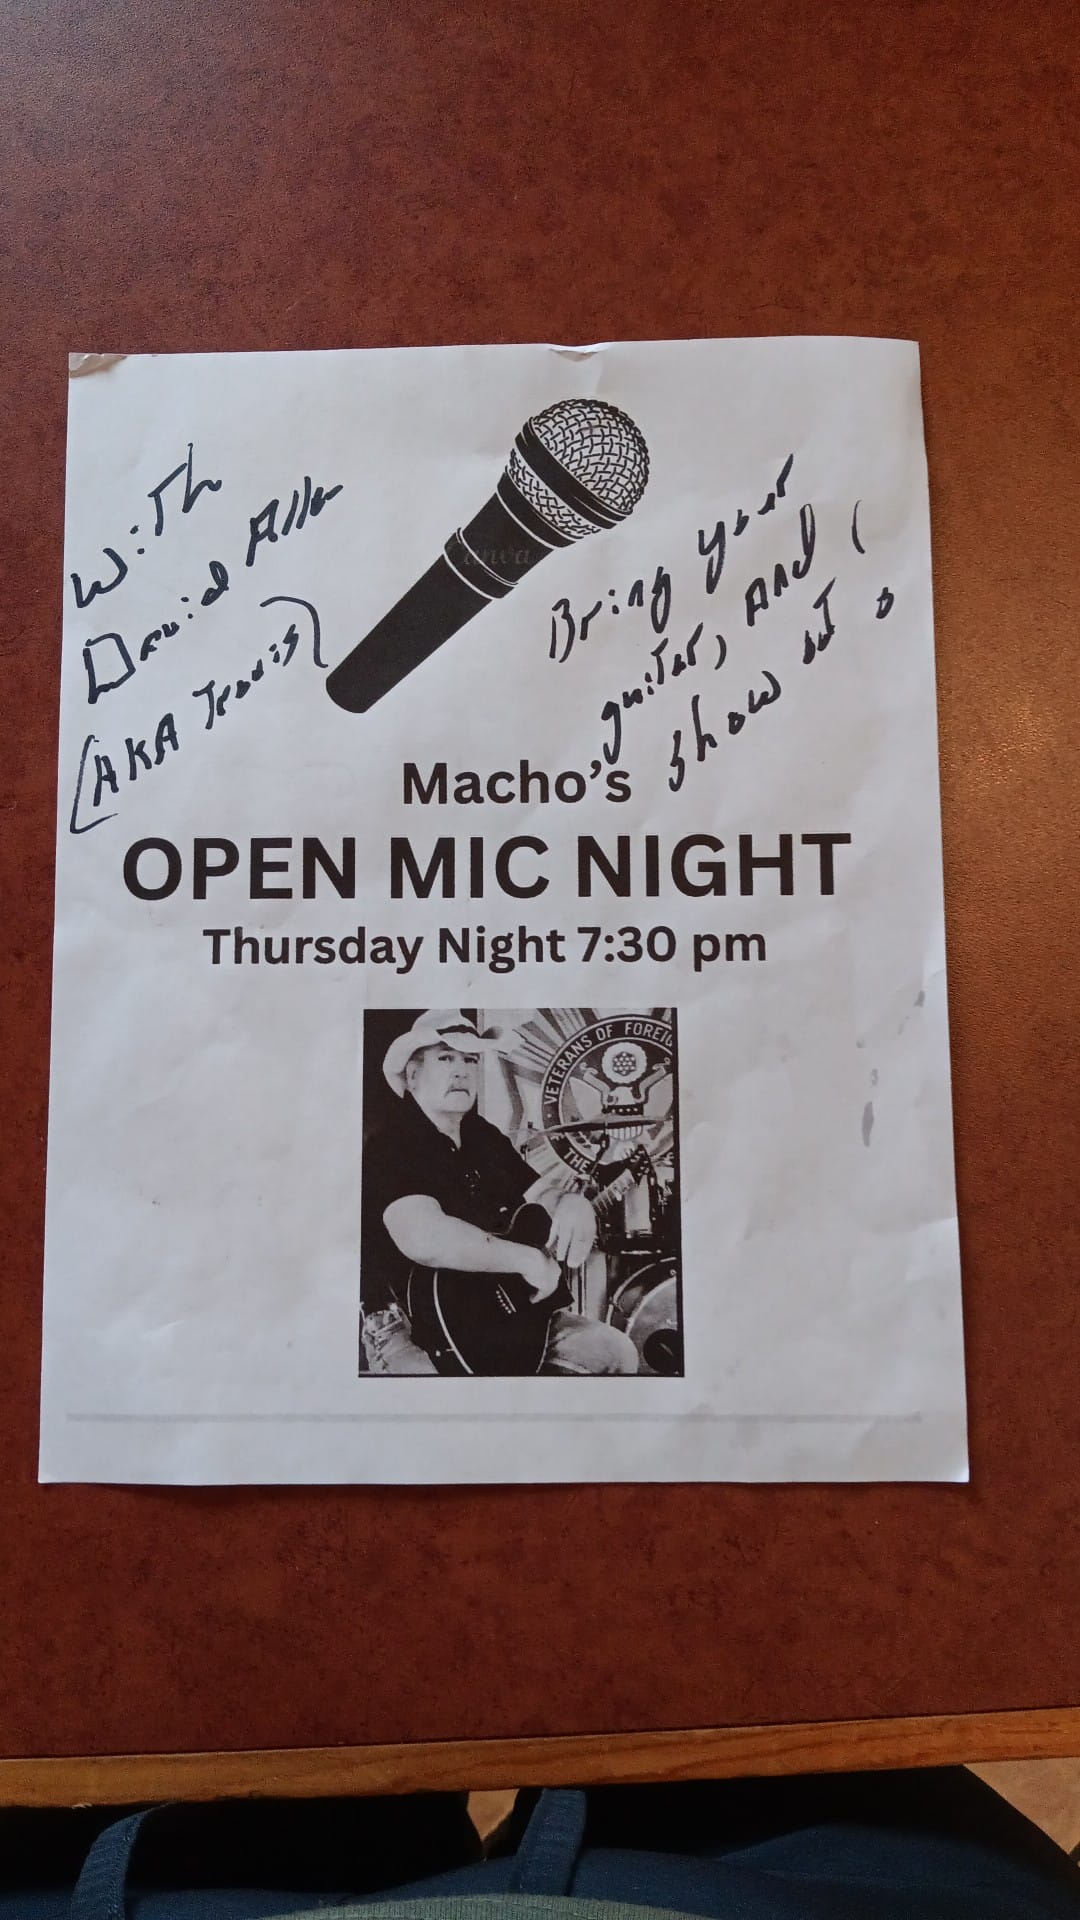 With
David Allen
(AKA Travis)
Bring your
guitar, And
show out!
Canva
Macho's
OPEN MIC NIGHT
Thursday Night 7:30 pm
VETERANS OF FOREIG
THE